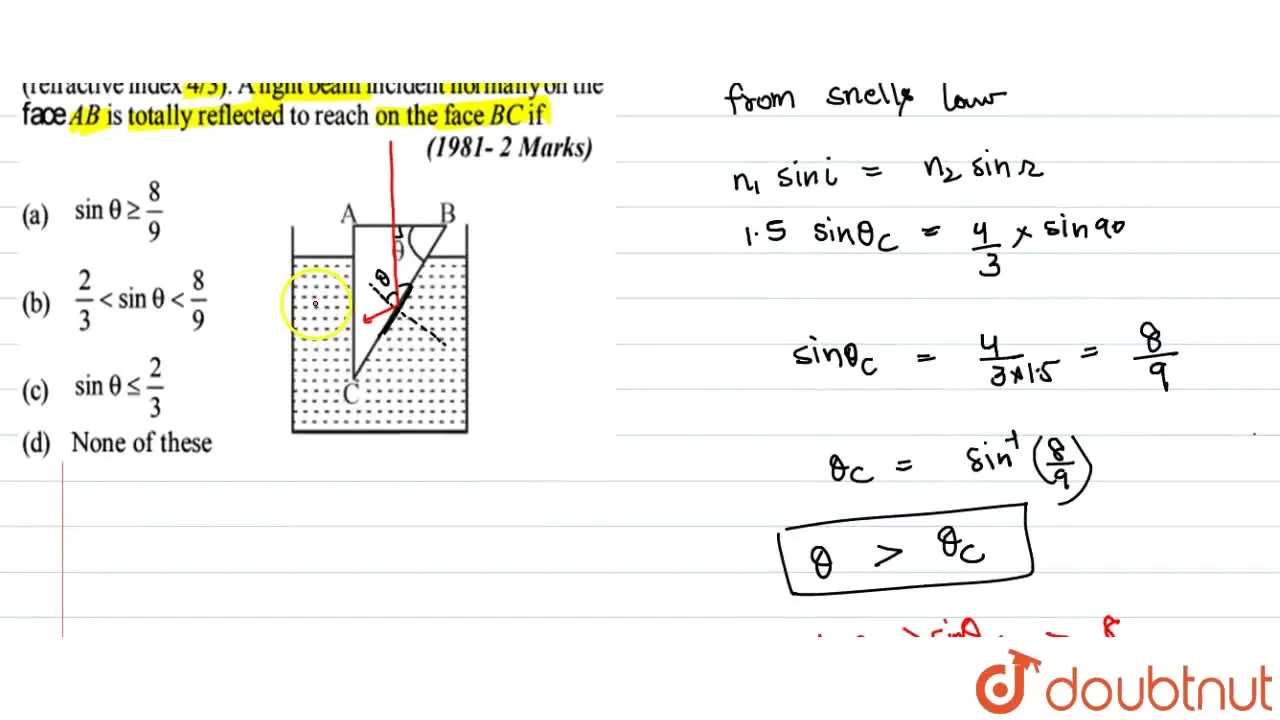 (refractive index 4/3). A light beam incident normally on the
face AB is totally reflected to reach on the face BC if
(1981- 2 Marks)
(a) sin θ ≥ 8/9
(b) 2/3 < sin θ < 8/9
(c) sin θ ≤ 2/3
(d) None of these
A B
θ
i θ
C
from snells law
n₁ sin i = n₂ sin r
1.5 sinθc = 4/3 × sin 90
sinθc = 4/(3×1.5) = 8/9
θc = sin⁻¹ (8/9)
θ > θc
doubtnut